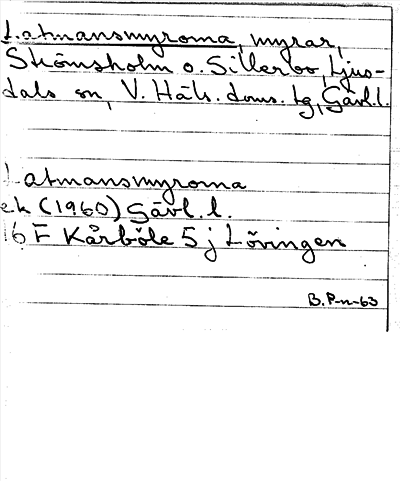 Latmansmyroma, myrar,
Strömsholm o. Sillerbo, Ljus-
dals sn, V. Häls. doms. tg, Gävl.l.
Latmansmyroma
ek (1960) Gävl. l.
16 F Kårböle 5 j Lövingen
B. P-n-63